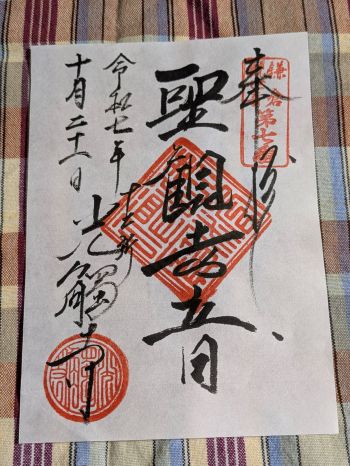 奉拝
鎌倉第七番
聖觀世音
十二所
光觸寺
令和七年
十月二十一日